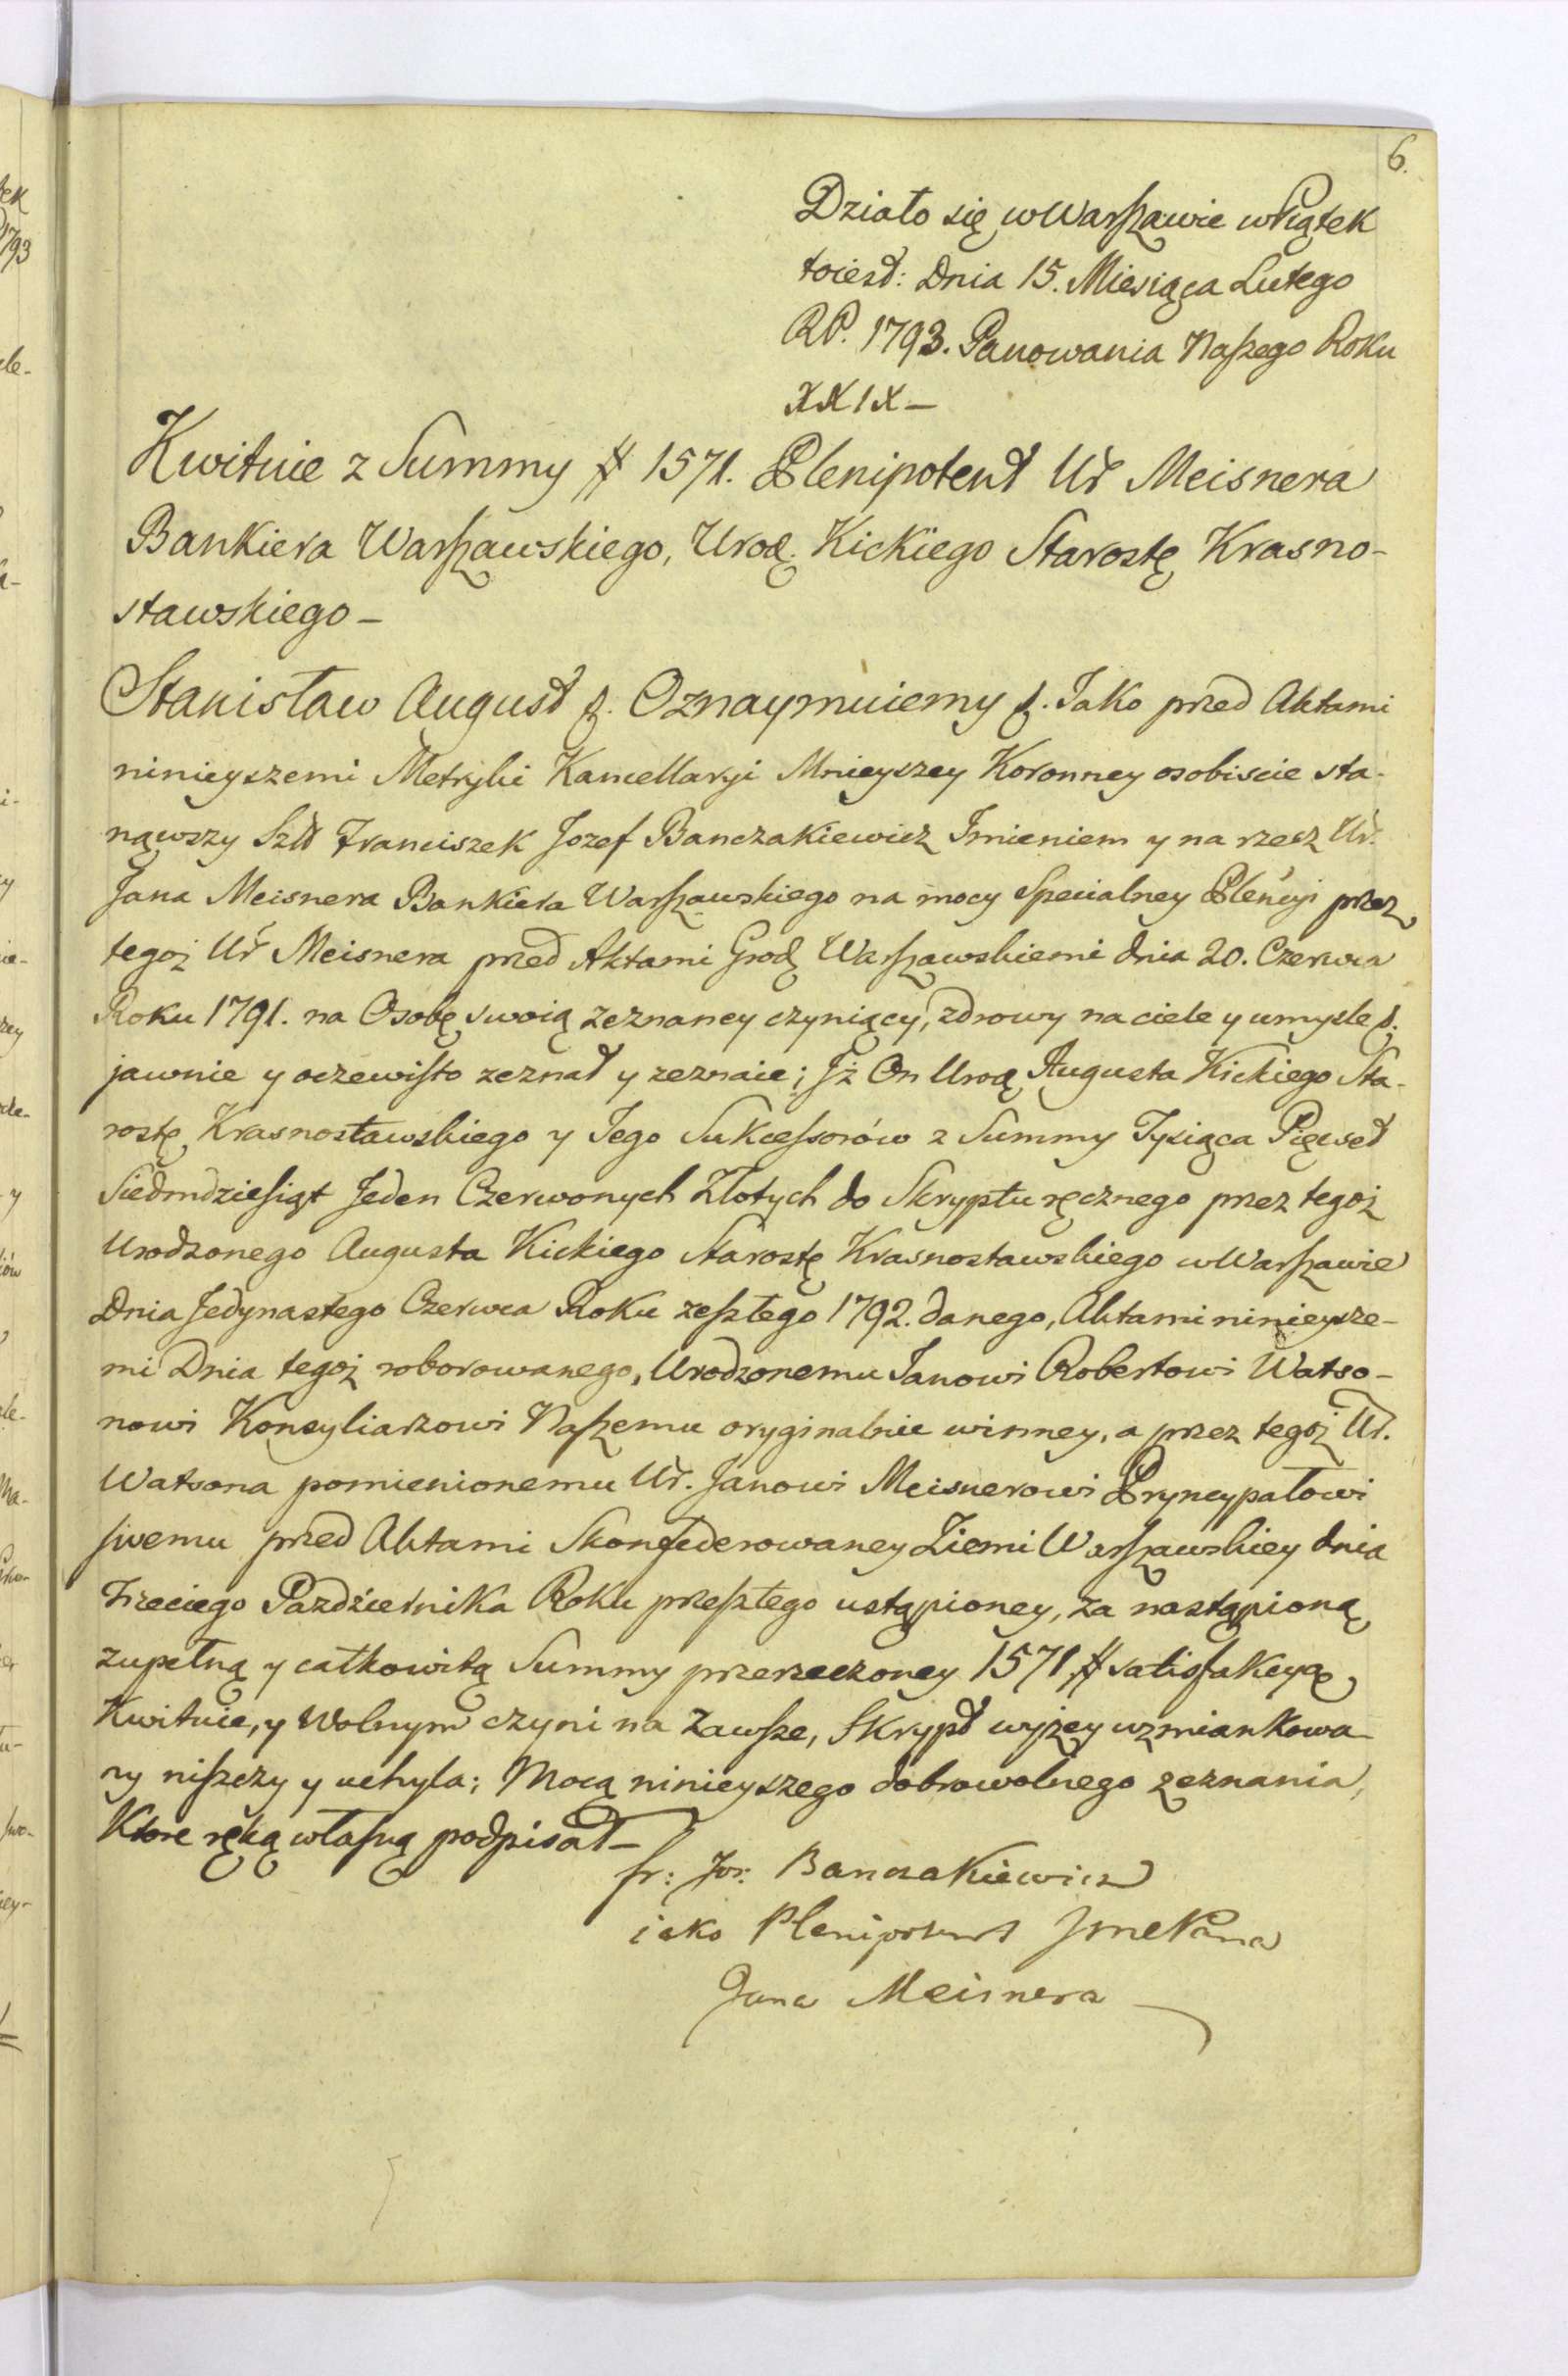 6.
Działo się w Warszawie w Piątek
toiest: Dnia 15. Miesiąca Lutego
RP. 1793. Panowania Naszego Roku
XXIX –
Kwituie z Summy # 1571. Plenipotent Ur Meisnera
Bankiera Warszawskiego, Urod. Kickiego Starostę Krasno-
stawskiego –
Stanisław August &. Oznaymuiemy &. Jako przed Aktami
ninieyszemi Metryki Kancellaryi Mnieyszey Koronney osobiscie sta-
nąwszy Szl Franciszek Jozef Banczakiewicz Imieniem y na rzecz Ur.
Jana Meisnera Bankiera Warszawskiego na mocy Specialney Plencyi przez
tegoż Ur Meisnera przed Aktami Grod Warszawskiemi dnia 20. Czerwca
Roku 1791. na Osobę swoią zeznaney czyniący, zdrowy na ciele y umysle &.
jawnie y oczewisto zeznał y zeznaie; Jż On Urod Augusta Kickiego Sta-
rostę Krasnostawskiego y Jego Sukcessorów z Summy Tysiąca Pięcset
Siedmdziesiąt Jeden Czerwonych Złotych do Skryptu ręcznego przez tegoż
Urodzonego Augusta Kickiego Starostę Krasnostawskiego w Warszawie
Dnia Jedynastego Czerwca Roku zeszłego 1792. danego, Aktami ninieysze-
mi Dnia tegoż roborowanego, Urodzonemu Janowi Robertowi Watso-
nowi Konsyliarzowi Naszemu oryginalnie winney, a przez tegoż Ur.
Watsona pomienionemu Ur. Janowi Meisnerowi Pryncypałowi
swemu przed Aktami Skonfederowaney Ziemi Warszawskiey dnia
Trzeciego Pazdziernika Roku przeszłego ustąpioney, za nastąpioną
zupełną y całkowitą Summy przerzeczoney 1571 # satisfakcyą
Kwituie, y Wolnym czyni na Zawsze, Skrypt wyżey wzmiankowa-
ny niszczy y uchyla; Mocą ninieyszego dobrowolnego zeznania,
Ktore ręką własną podpisał –
Fr: Joz: Banczakiewicz
iako Plenipotent Jmc Pana
Jana Meisnera